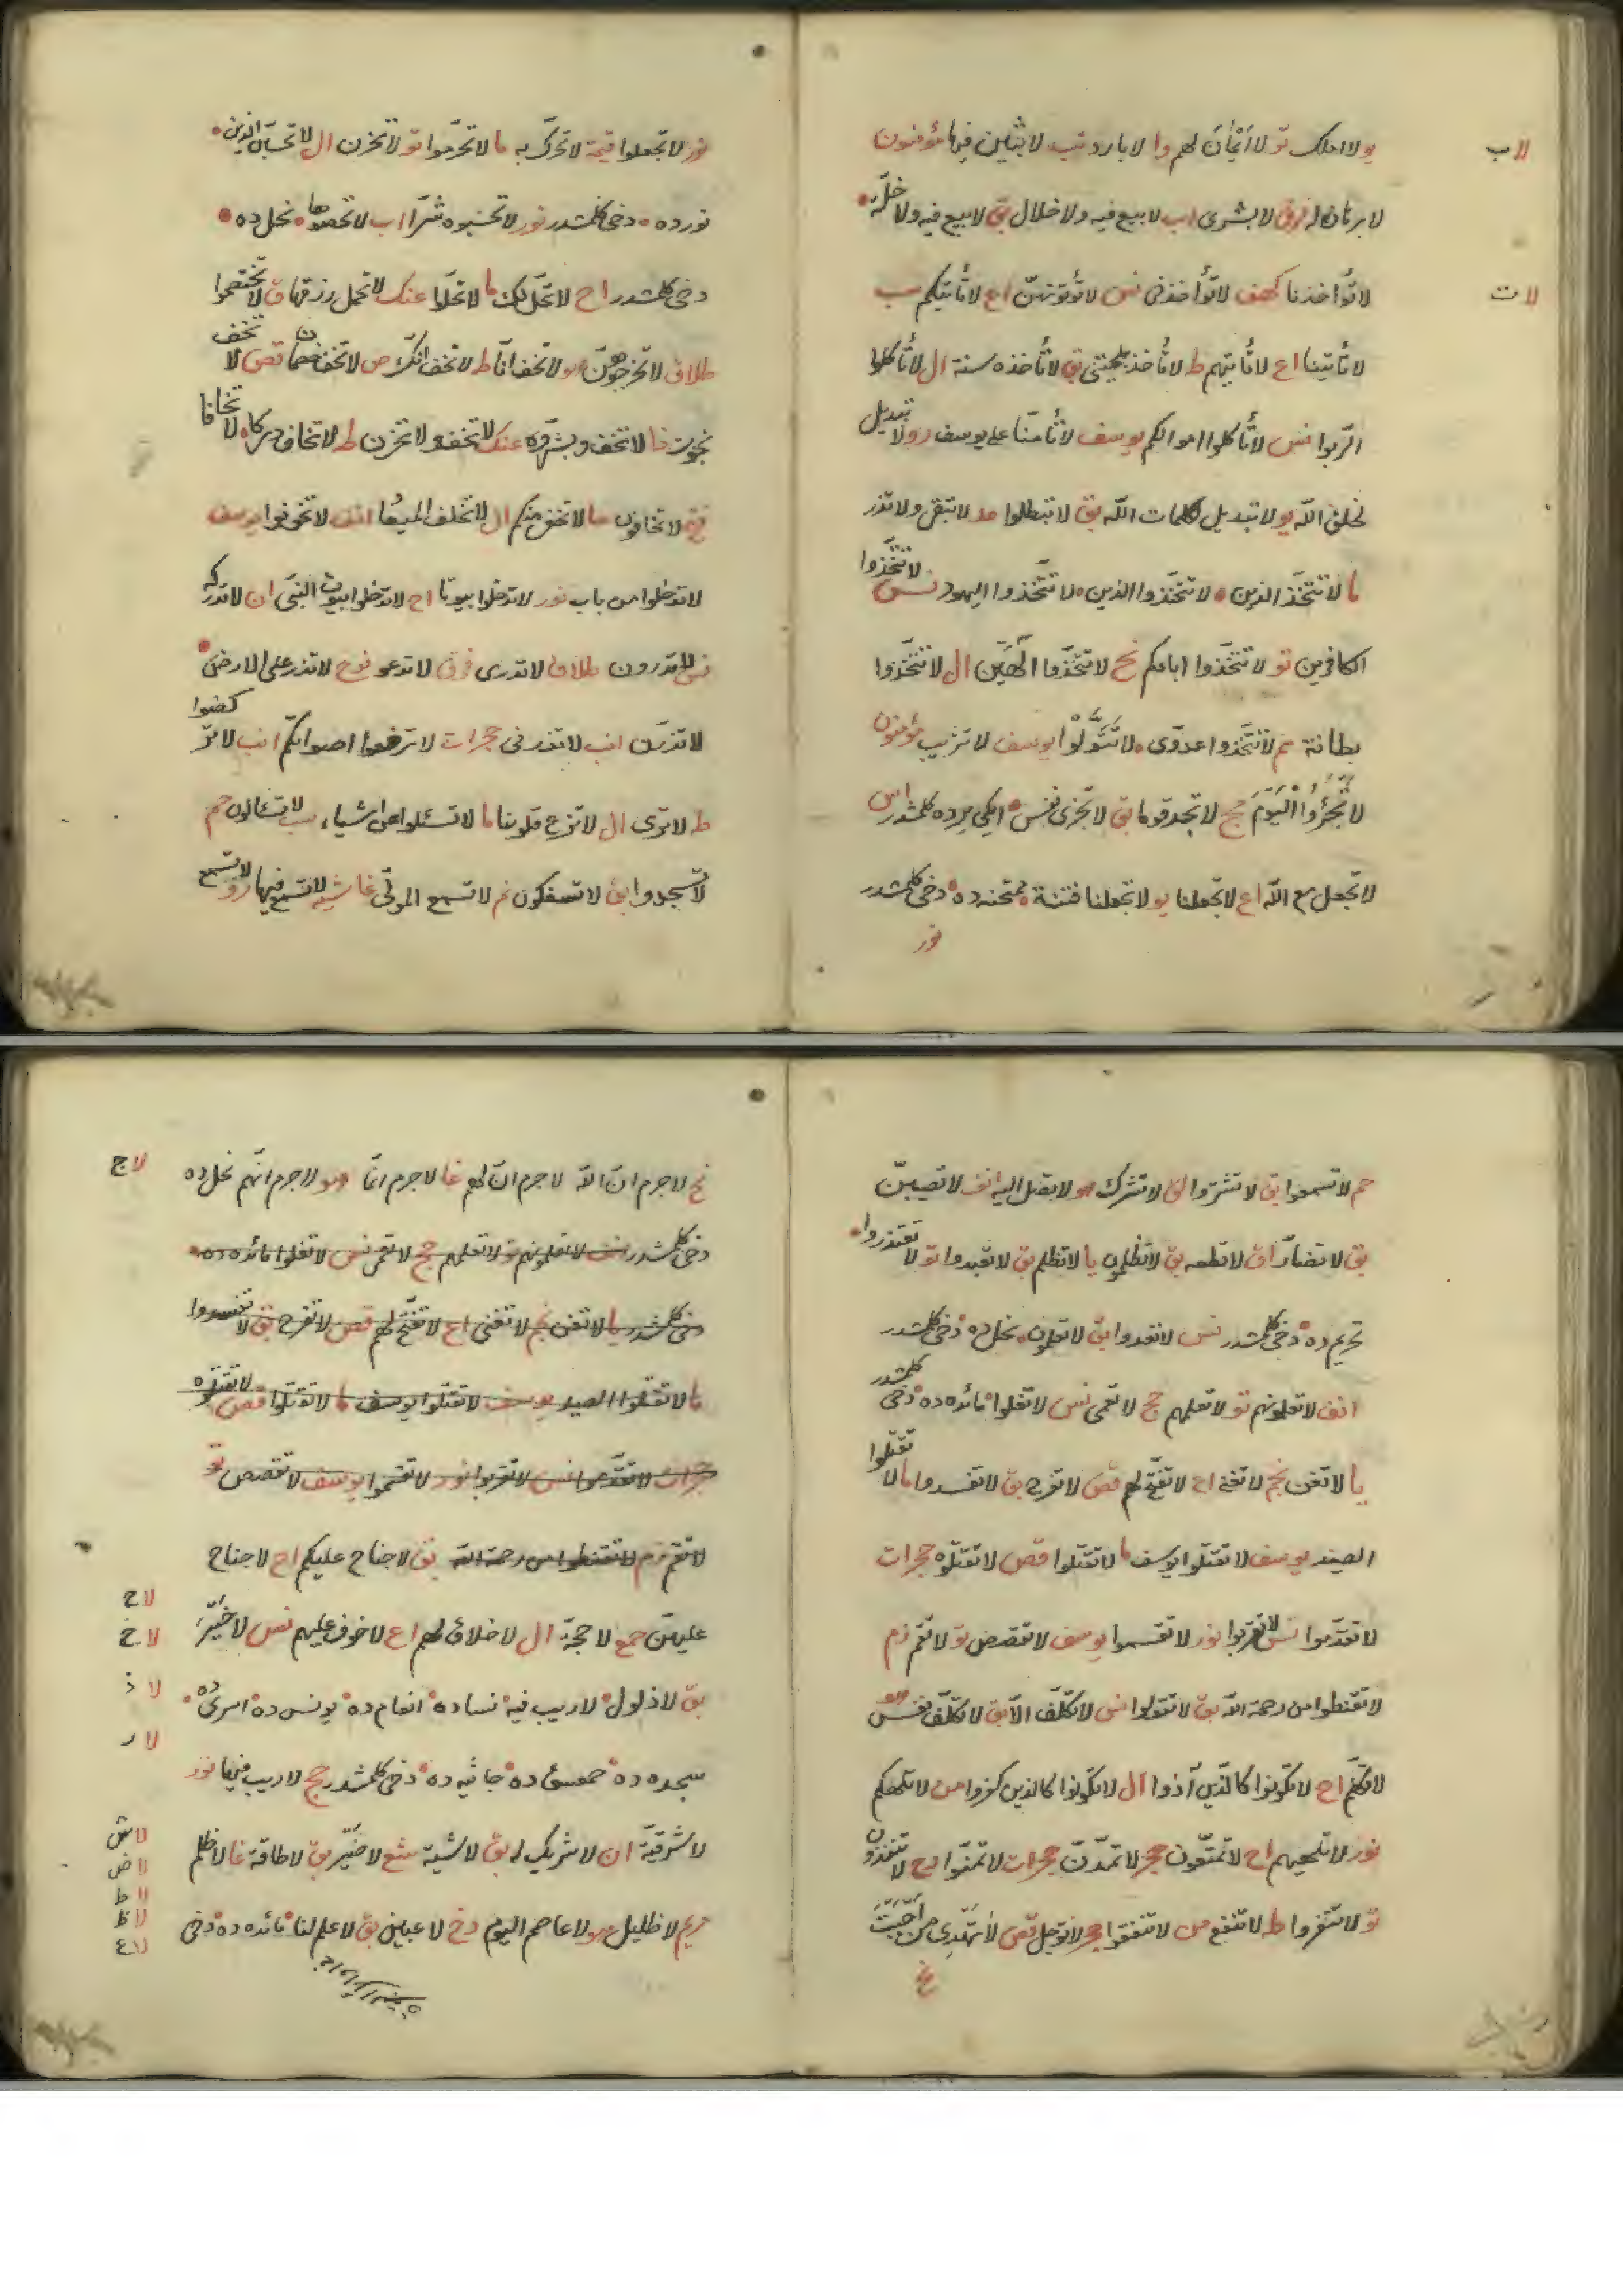 لا ب
يو لا املك تو لا أَيْمَانَ لهم وا لا بارد نب لا بثين فيها مؤمنون
لا برهان له فرق لا بشرى اب لا بيع فيه ولا خلال بق لا بيع فيه ولا خلّة
لا ت
لا تؤاخذنا كهف لا تؤاخذنى نس لا تؤتوهنّ اع لا تأتيكم سب
لا تأتينا اع لا تأتيهم ط لا تأخذ بلحيتى بق لا تأخذه سنة ال لا تأكلوا
الرّبوا نس لا تأكلوا اموالكم يوسف لا تأمنّا على يوسف رو لا تبديل
لخلق اللّه يو لا تبديل لكلمات اللّه بق لا تبطلوا مد لا تبقى ولا تذر
ما لا تتّخذ الذين لا تتّخذوا الذين لا تتّخذوا اليهود نس لا تتّخذوا
الكافرين تو لا تتّخذوا اباءكم نح لا تتّخذوا الٓهَين ال لا تتّخذوا
بطانة مم لا تتّخذوا عدوّى لا تَتَوَلَّوْا يوسف لا تثريب مؤمنون
لا تَجْـَٔرُوا الْيَوْمَ حج لا تجد قوما بق لا تجزى نفس ايكى يرده كلمشدر اس
لا تجعل مع اللّه اع لا تجعلنا يو لا تجعلنا فتنة ممتحنه ده دخى كلمشدر
نور
نور لا تجعلوا قيمة لا تحرّك به ما لا تحرّموا تو لا تحزن ال لا تحسبنّ الذين
نور ده دخى كلمشدر نور لا تحسبوه شرّا اب لا تحصوها نحل ده
دخى كلمشدر اح لا تحلّ لك ما لا تحلّوا عنك لا تحمل رزقها ق لا تختصموا
طلاق لا تخرجوهنّ هو لا تخف انّا ط لا تخف انّك ص لا تخف خصمان قص لا تخف
نجوت ذا لا تخف وبشّروه عنك لا تخف ولا تحزن ط لا تخاف دركا لا تخافا
فتح لا تخافون حا لا تخفى منكم ال لا تخلف الميعاد انف لا تخونوا يوسف
لا تدخلوا من باب نور لا تدخلوا بيوتا اح لا تدخلوا بيوت النبى ان لا تدركه
نس لا تدرون طلاق لا تدرى فرق لا تدعو نوح لا تذر على الارض
لا تذرنّ انب لا تذرنى حجرات لا ترفعوا اصواتكم انب لا تركضوا
ط لا ترى ال لا تزغ قلوبنا ما لا تسئلوا عن اشياء سب لا تسئالون حم
لا تسجدوا بق لا تسفكون نم لا تسمع الموتى غاشيه لا تسمع فيها رو لا تسمع
حم لا تسمعوا بق لا تشتروا لق لا تشرك هو لا تصل اليه انف لا تصيبنّ
بق لا تضارّ اق لا تطعه بق لا تظلمون يا لا تظلم بق لا تعبدوا تو لا تعتذروا
تحريم ده دخى كلمشدر نس لا تعدوا بق لا تعلمون نحل ده دخى كلمشدر
انف لا تعلمونهم تو لا تعلمهم حج لا تعمى نس لا تغلوا مائده ده دخى كلمشدر
يا لا تغن نجم لا تغنى اع لا تفتّح لهم قص لا تفرح بق لا تفسدوا ما لا تقتلوا
الصيد يوسف لا تقتلوا يوسف ما لا تقتلوا قص لا تقتلوه حجرات
لا تقدّموا نس لا تقربوا نور لا تقسموا يوسف لا تقصص تو لا تقم زم
لا تقنطوا من رحمة اللّه بق لا تقولوا نس لا تكلّف الّا بق لا تكلّف نفس هو
لا تكلّم اح لا تكونوا كالّذين آذوا ال لا تكونوا كالذين كفروا من لا تلهكم
نور لا تلهيهم اح لا تمتّعون حجر لا تمدّنّ حجرات لا تمنّوا رح لا تنفذون
تو لا تنفروا ط لا تنفع من لا تنفقوا حجر لا توجل قص لا تَهْدِى مَن اَحْبَبْتَ
نح
لا ج
نح لا جرم انّ اللّه لا جرم انّ لهم غا لا جرم انّما هو لا جرم انّهم نحل ده
دخى كلمشدر انف لا تعلمونهم تو لا تعلمهم حج لا تعمى نس لا تغلوا مائده ده
دخى كلمشدر يا لا تغن نجم لا تغنى اع لا تفتّح لهم قص لا تفرح بق لا تفسدوا
ما لا تقتلوا الصيد يوسف لا تقتلوا يوسف ما لا تقتلوا قص لا تقتلوه
حجرات لا تقدّموا نس لا تقربوا نور لا تقسموا يوسف لا تقصص تو
لا تقم زم لا تقنطوا من رحمة اللّه بق لا جناح عليكم اح لا جناح
لا ح
لا خ
عليهنّ جمع لا حجّة ال لا خلاق لهم اع لا خوف عليهم نس لا خَيْرَ
لا ذ
بق لا ذلول لا ريب فيه نساده انعام ده يونس ده اسرى ده
لا ر
سجده ده حمعسق ده جاثيه ده دخى كلمشدر حج لا ريب فيها نور
لا ش
لا شرقيّة ان لا شريك له بق لا شية شع لا ضير بق لا طاقة غا لا ظلم
لا ض
لا ط
لا ظ
لا ع
مريم لا ظليل هو لا عاصم اليوم دخ لا عبين بق لا علم لنا مائده ده دخى